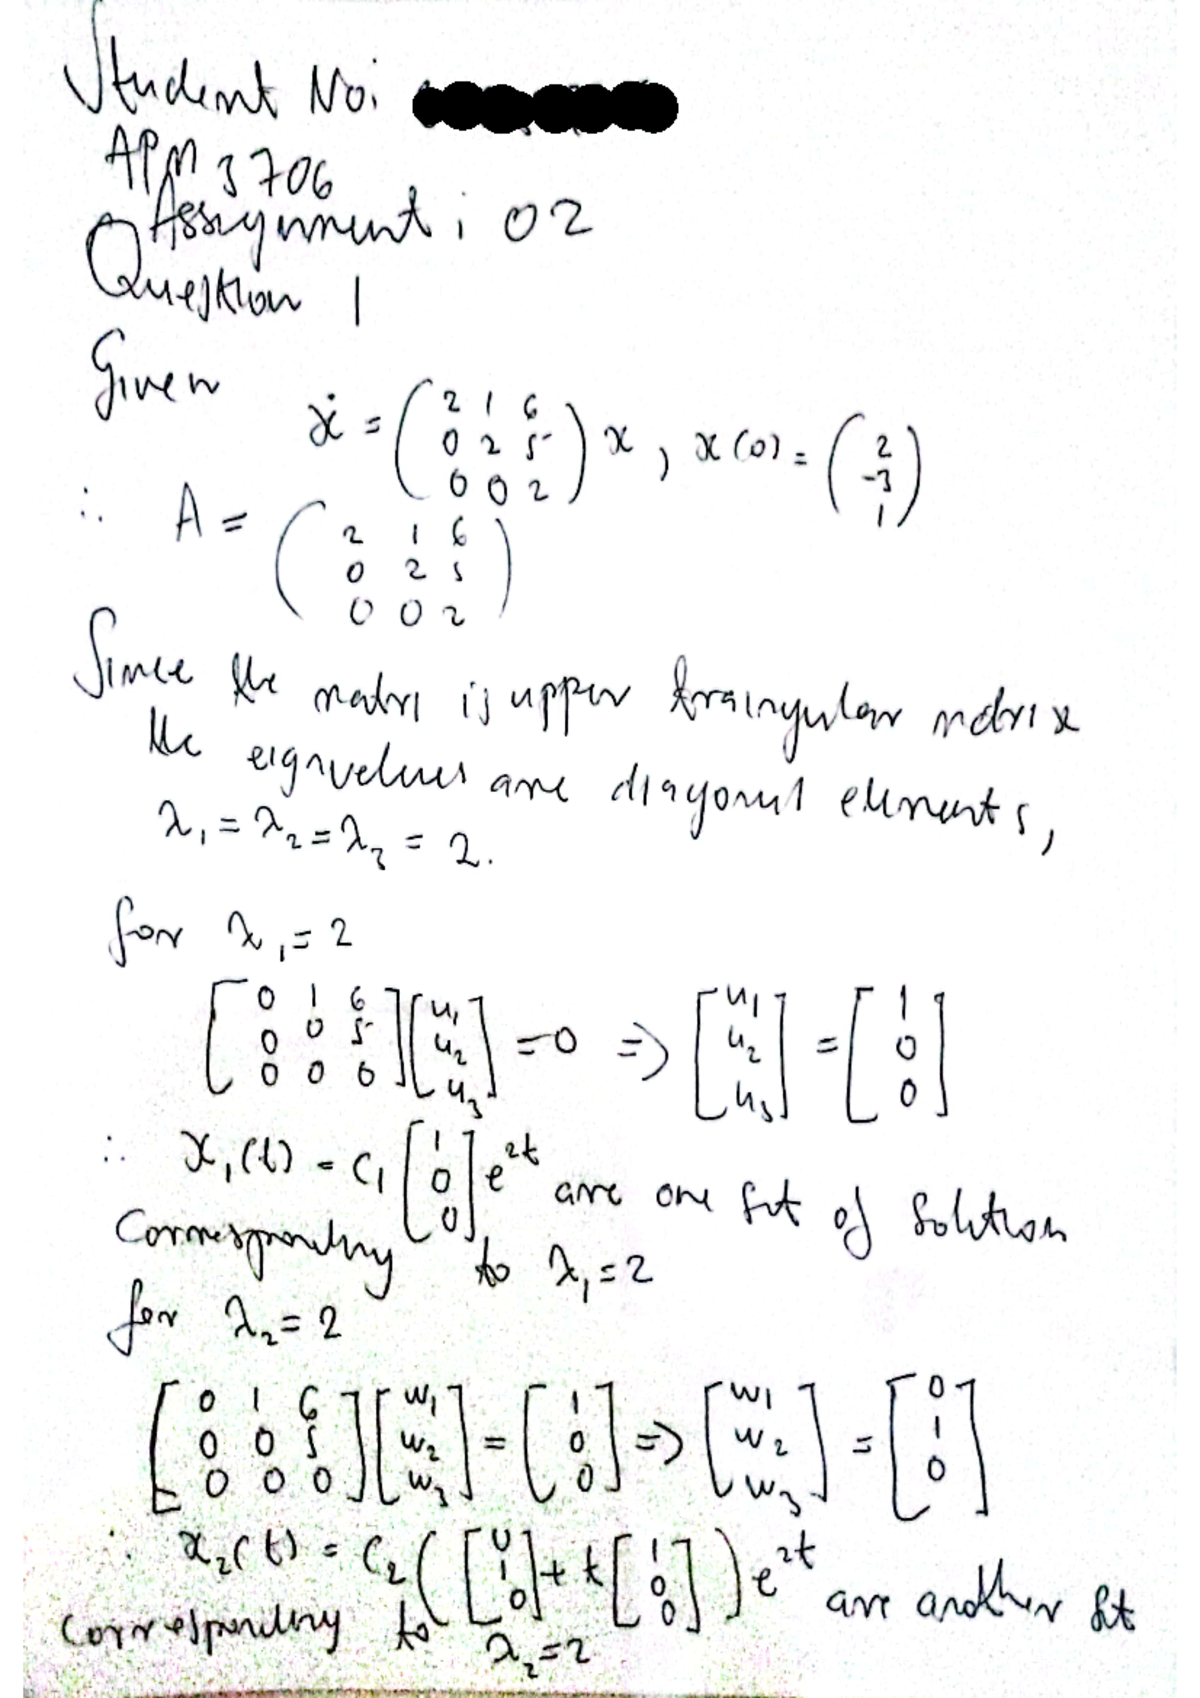 Student No:
APM 3706
Assignment: 02
Question 1
Given
ẋ = (2 1 6; 0 2 5; 0 0 2) x, x(0) = (2; -3; 1)
∴ A = (2 1 6; 0 2 5; 0 0 2)
Since the matri is upper traingular matrix
the eignvelues are diagonal elements,
λ₁ = λ₂ = λ₃ = 2.
for λ₁ = 2
[0 1 6; 0 0 5; 0 0 0] [u₁; u₂; u₃] = 0 ⇒ [u₁; u₂; u₃] = [1; 0; 0]
∴ x₁(t) = c₁ [1; 0; 0] e^2t are one set of solution
Corresponding to λ₁ = 2
for λ₂ = 2
[0 1 6; 0 0 5; 0 0 0] [w₁; w₂; w₃] = [1; 0; 0] ⇒ [w₁; w₂; w₃] = [0; 1; 0]
∴ x₂(t) = c₂ ([0; 1; 0] + t [1; 0; 0]) e^2t are another set
corresponding to λ₂ = 2